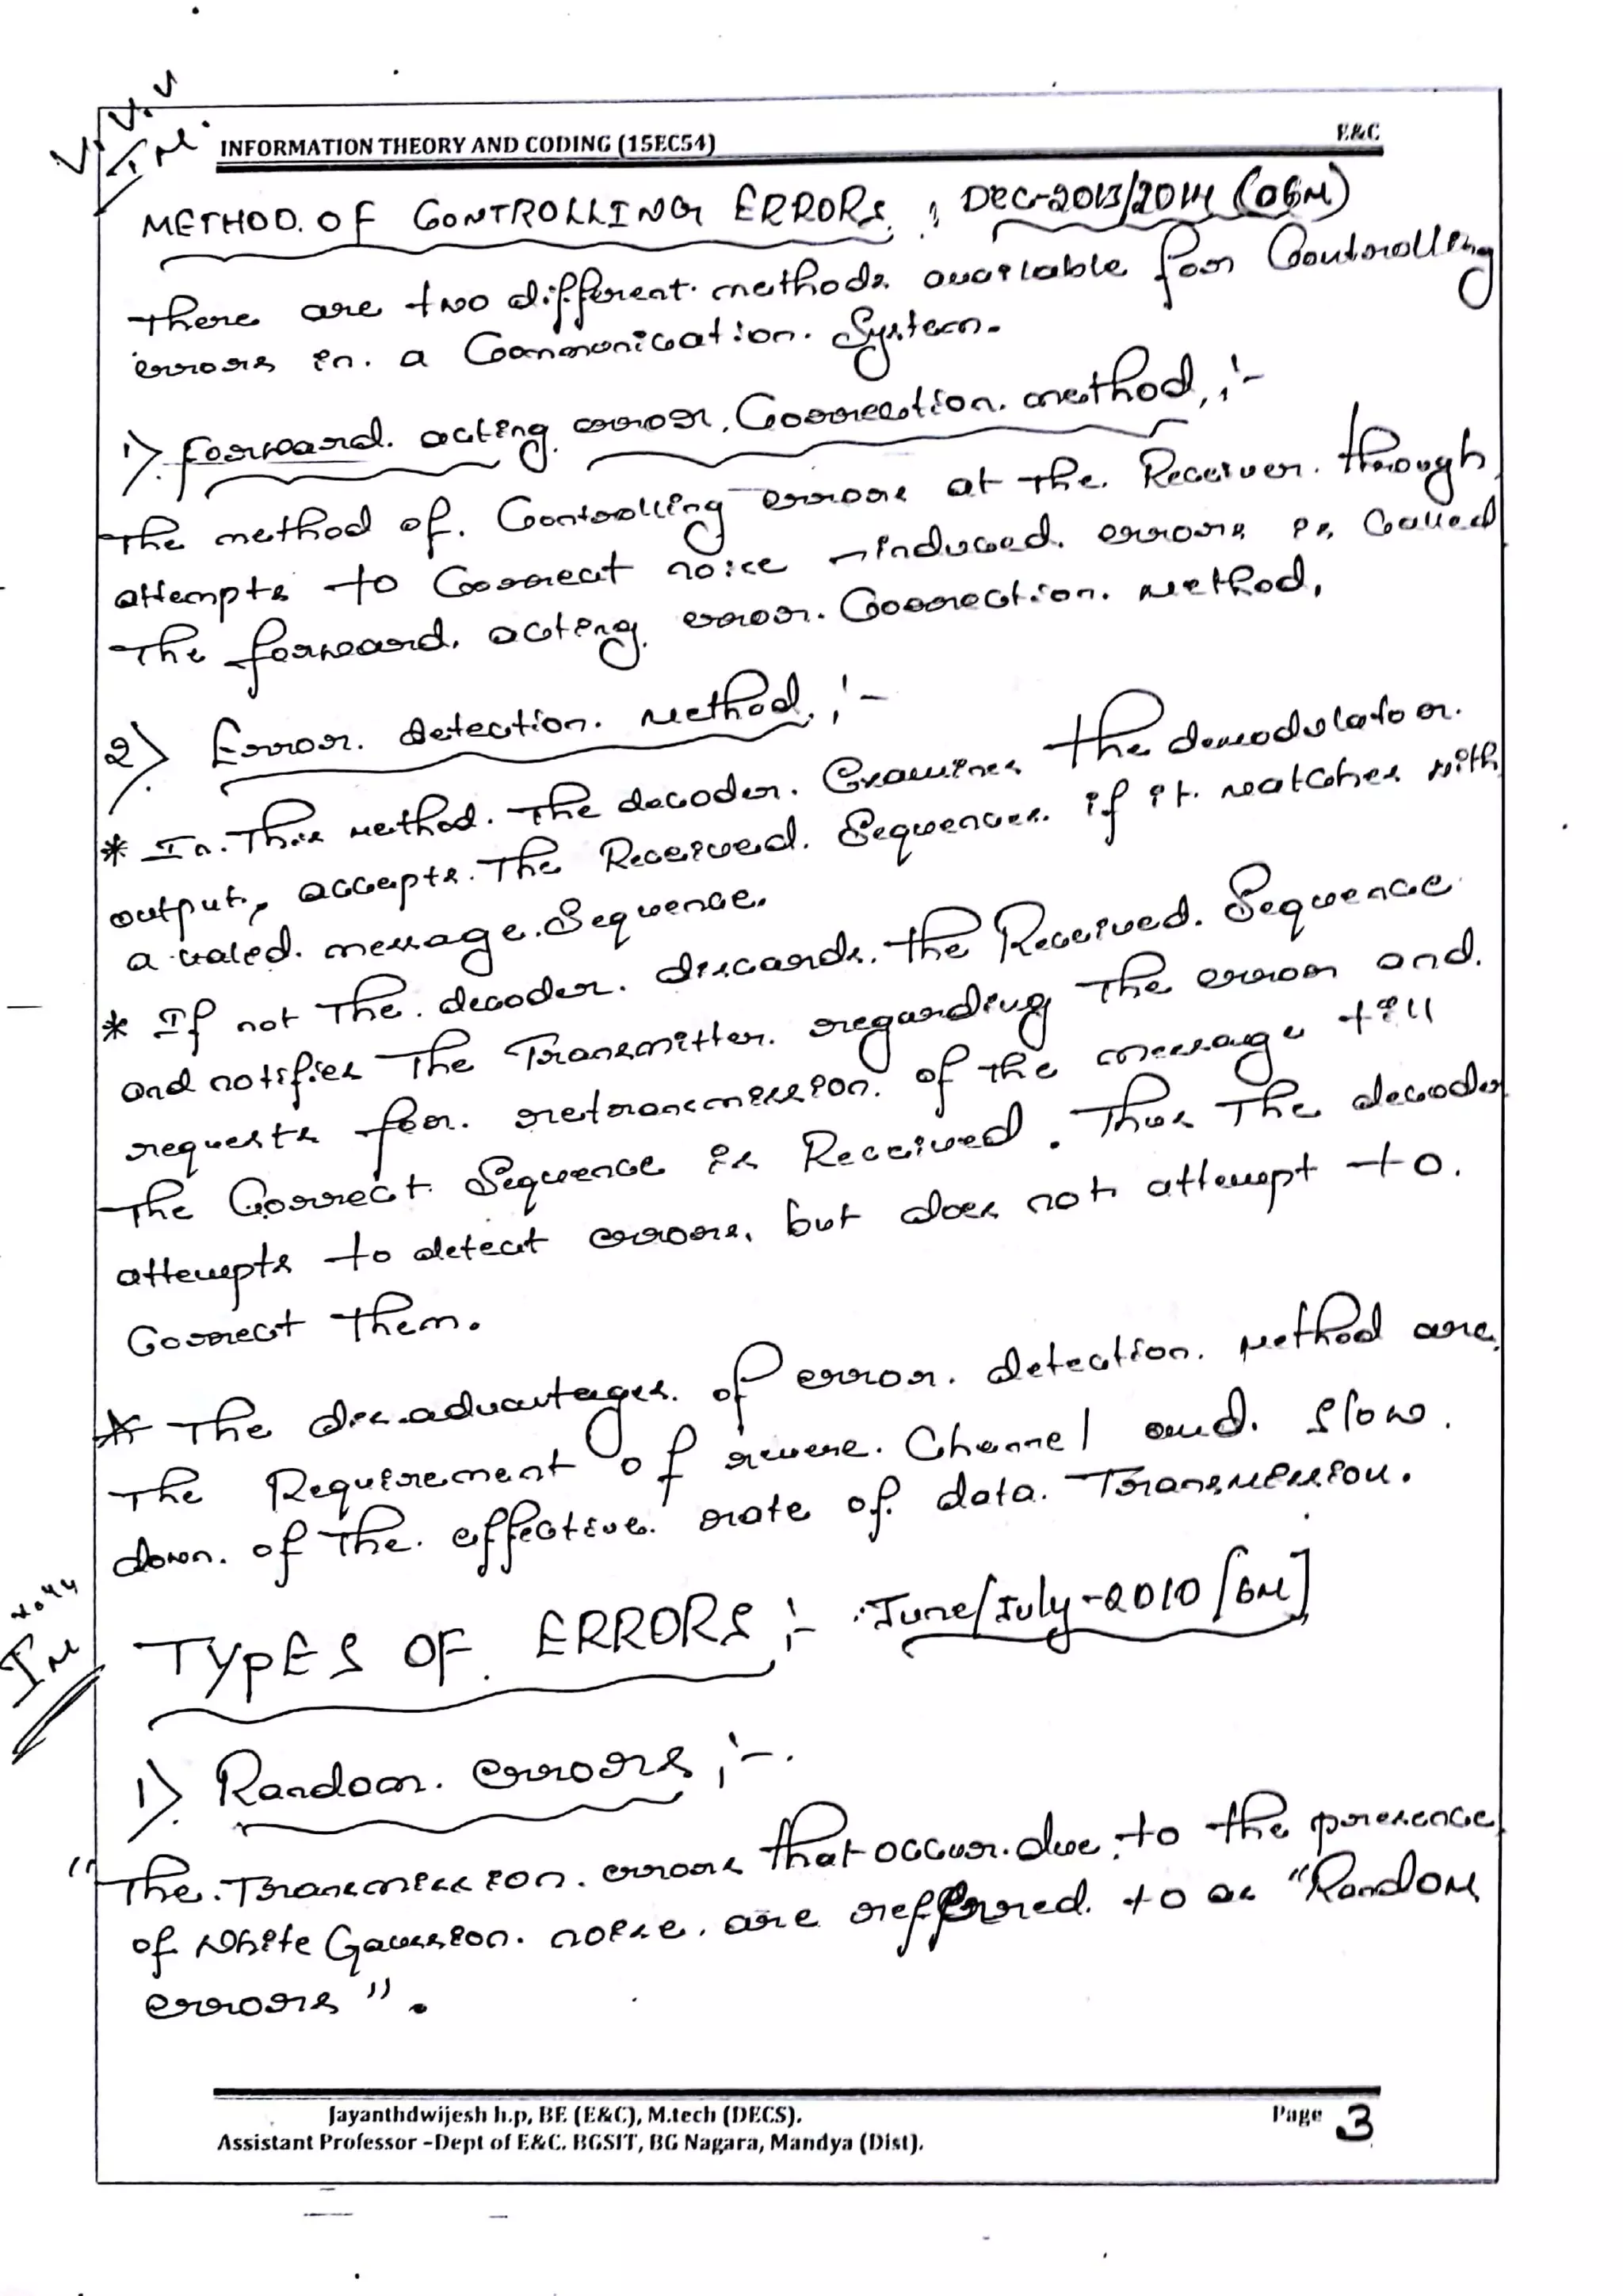 V. V. V
IM.
INFORMATION THEORY AND CODING (15EC54) E&C
METHOD. OF CONTROLLING ERRORS. : DEC-2013/2014 (06M)
There are two different methods available for Controlling
errors in. a Communication. System.
1). forward. acting error. Correction. method, :-
The method of. Controlling errors at the. Receiver. through
attempts to Correct noise -induced. errors is. Called
The forward. acting. error. Correction. method.
2) Error. detection. method. :-
* In. This method. The decoder. Examines the demodulator.
output, accepts. The Received. Sequences. if it. matches with
a valid. message. Sequence.
* If not The. decoder. discards. the Received. Sequence
and notifies The Transmitter. regarding The error and.
requests for. retransmission. of the message till
The Correct Sequence is Received. Thus The decoder
attempts to detect errors. but does not attempt to.
Correct them.
* The dis.advantages. of error. detection. method are.
The Requirement of reverse. Channel and. slow.
down. of The. effective. rate of. data. Transmission.
IM
TYPES OF. ERRORS :- June/July-2010 [6M]
1). Random. errors :-.
"The. Transmission. errors that occur. due. to the presence
of White Gaussion. noise. are refferred. to as "Random
errors".
Jayanthdwijesh h.p, BE (E&C), M.tech (DECS).
Page 3
Assistant Professor –Dept of E&C. BGSIT, BG Nagara, Mandya (Dist).